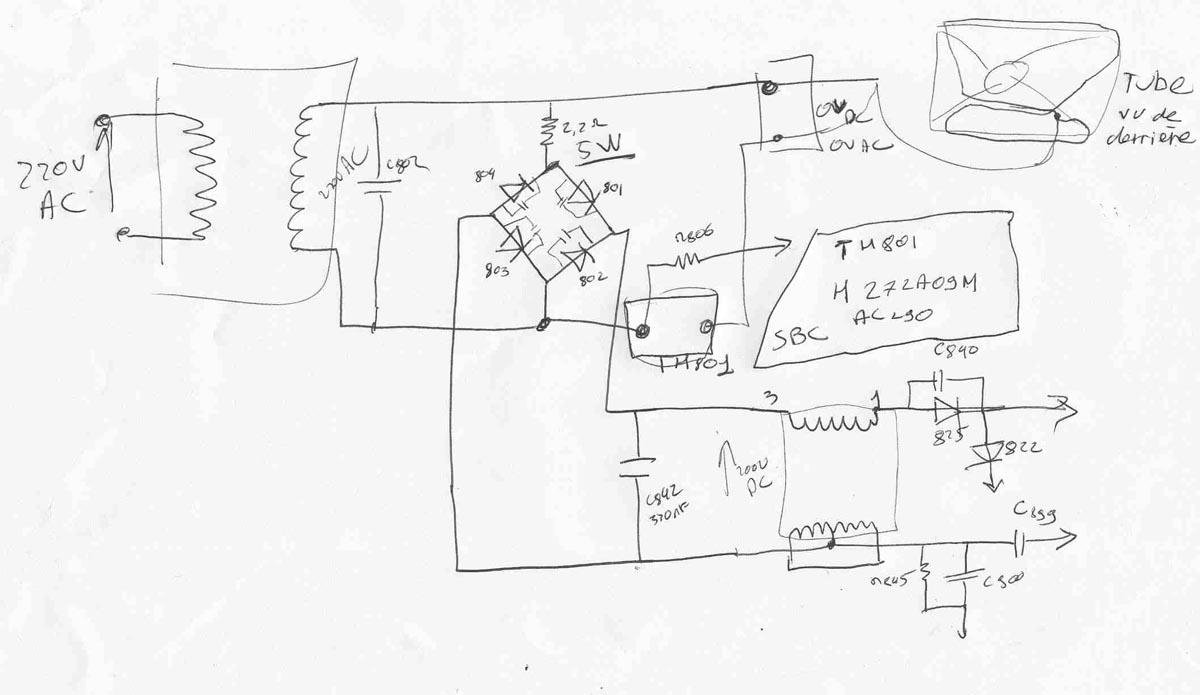 220V
AC
220V AC
C802
2,2Ω
5W
804
801
803
802
0V
DC
0V AC
TUBE
vu de
derrière
R806
TH801
TH801
H 272A09M
AC290
SBC
3
1
C840
825
822
200V
DC
C842
330nF
C899
R845
C900